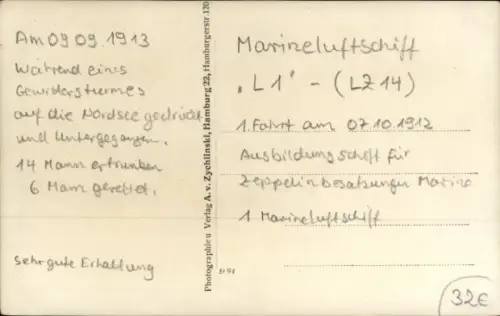 Am 09 09. 1913
Während eines
Gewidersturmes
auf die Nordsee gedrückt
und Untergegangen.
14 Mann ertrunken
6 Mann gerettet.
sehr gute Erhaltung
Photographie u Verlag A. v. Zychlinski, Hamburg 22, Hamburgerstr. 120
Marineluftschiff
"L 1" - (LZ 14)
1. Fahrt am 07.10.1912
Ausbildungschiff für
Zeppelinbesatzungen Marine
1 Marineluftschiff
32€